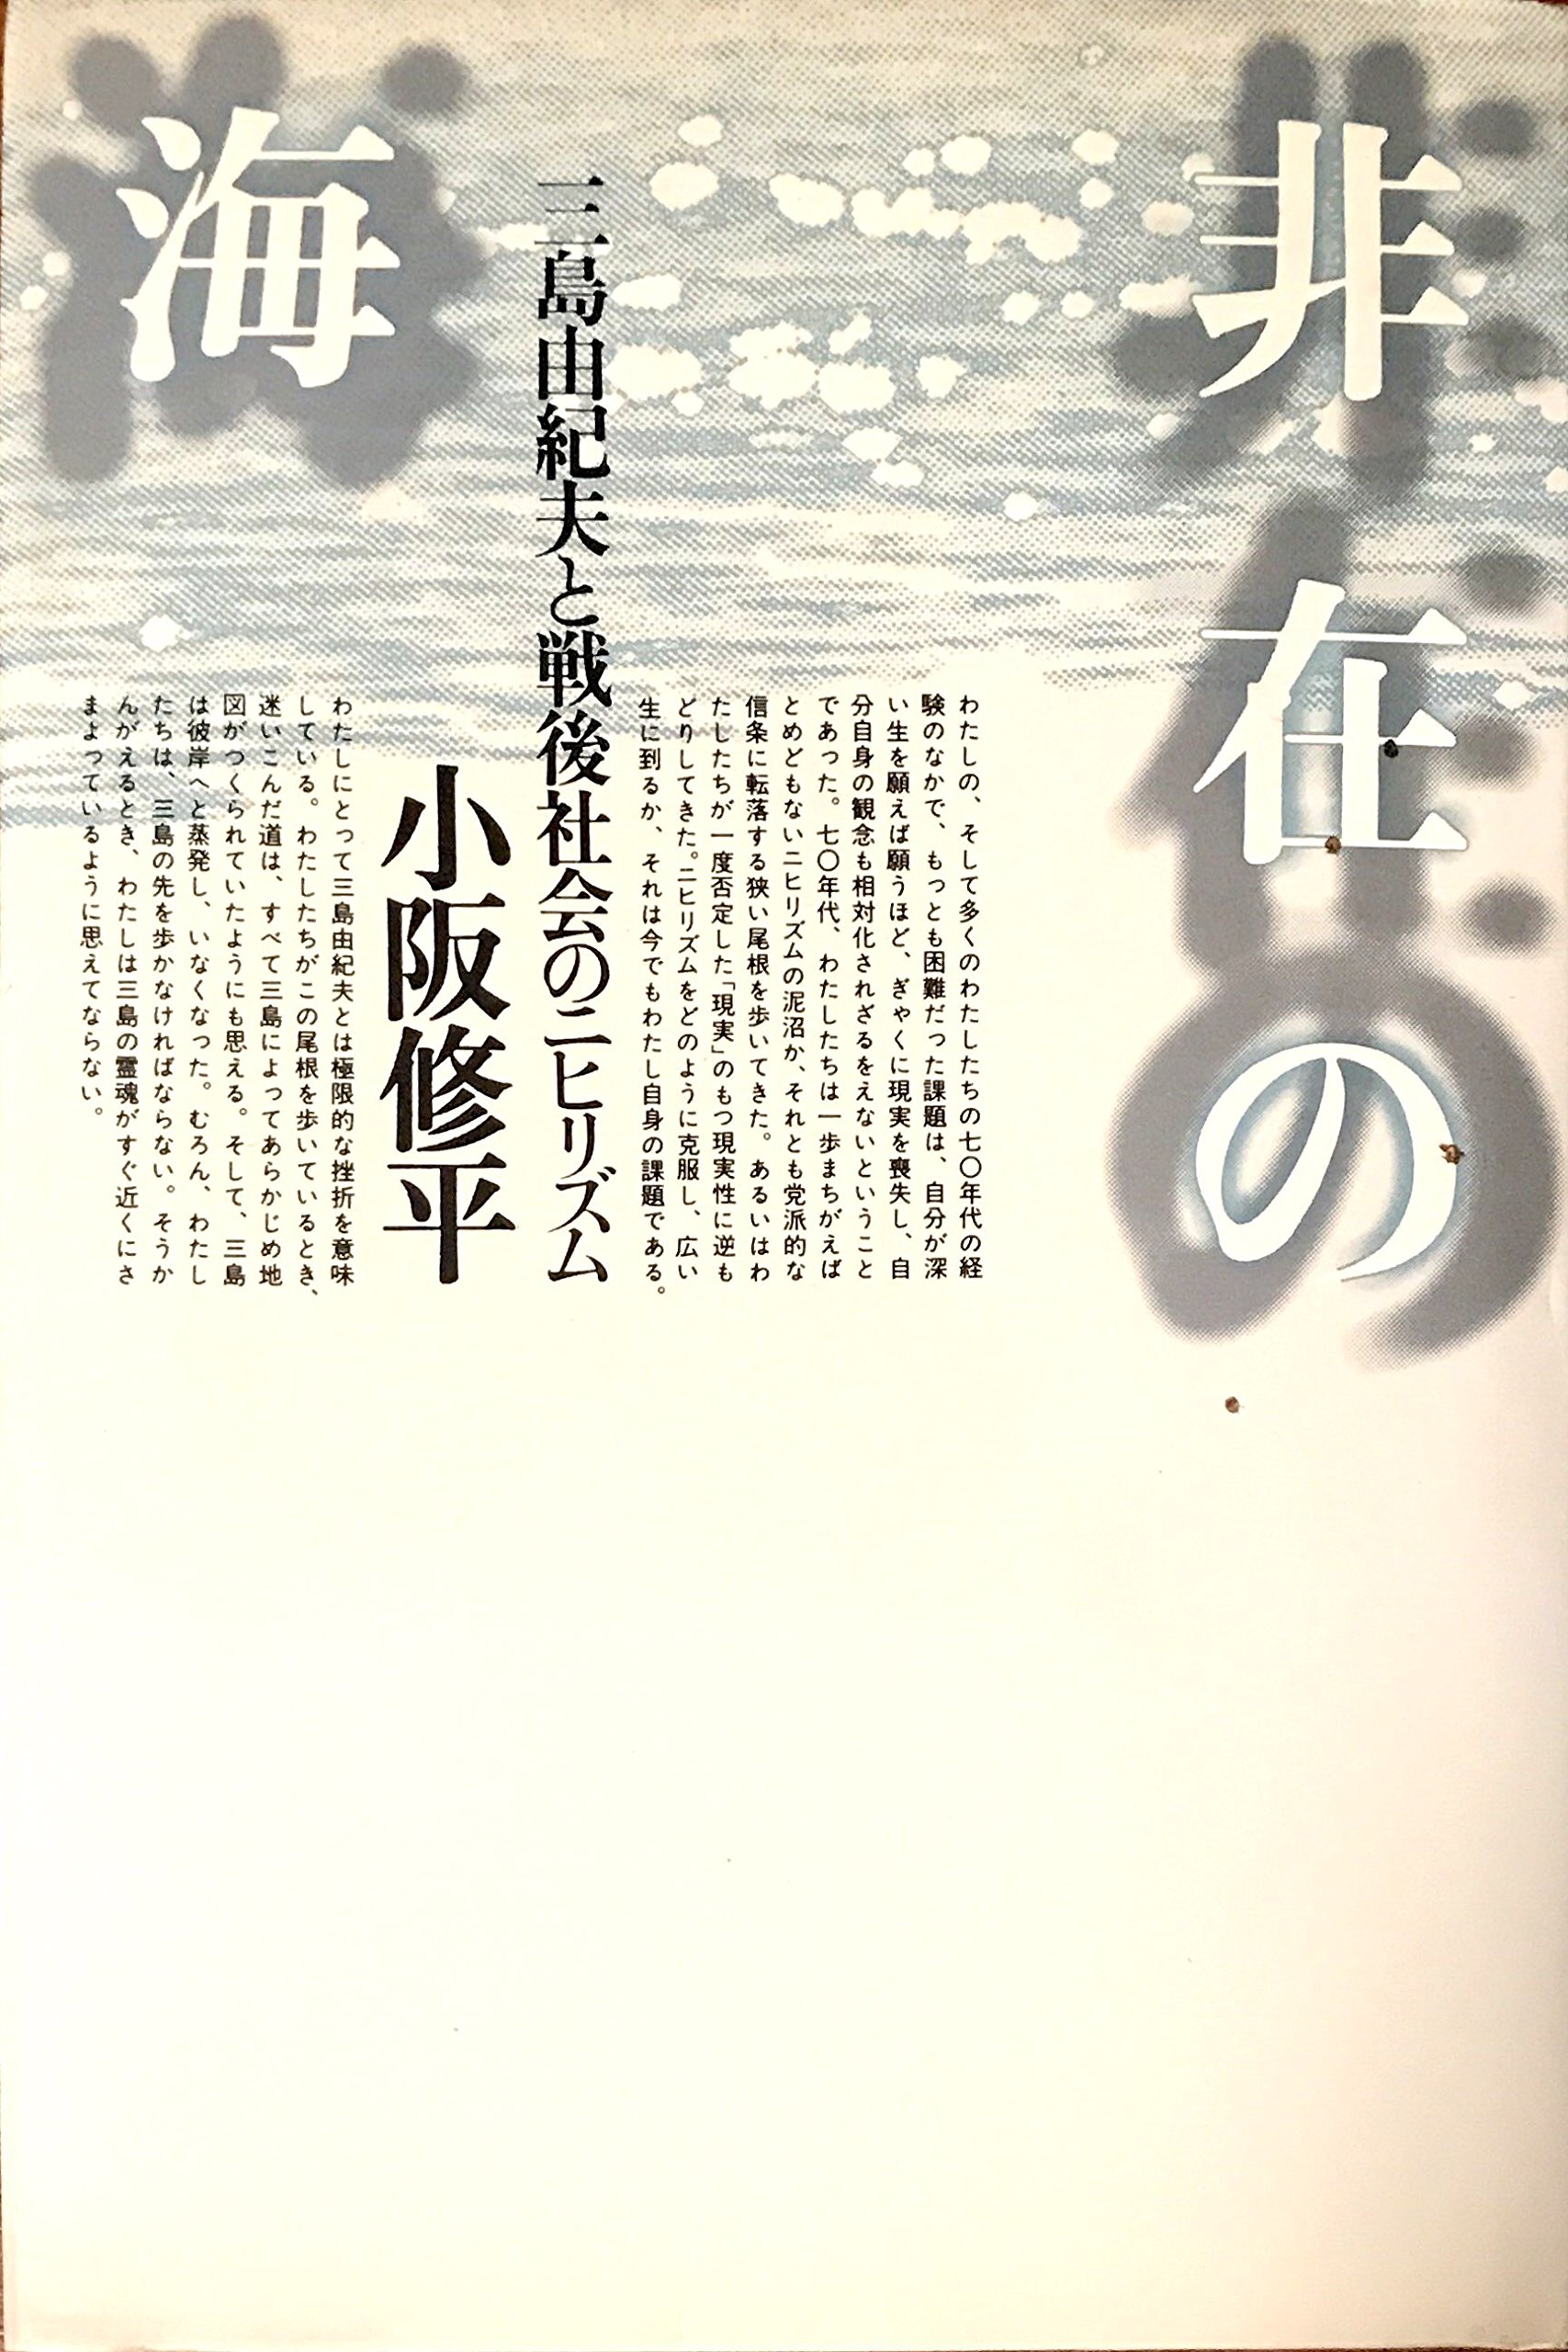 非在の
海
わたしの、そして多くのわたしたちの七〇年代の経
験のなかで、もっとも困難だった課題は、自分が深
い生を願えば願うほど、ぎゃくに現実を喪失し、自
分自身の観念も相対化されざるをえないということ
であった。七〇年代、わたしたちは一歩まちがえば
とめどもないニヒリズムの泥沼か、それとも党派的な
信条に転落する狭い尾根を歩いてきた。あるいはわ
たしたちが一度否定した「現実」のもつ現実性に逆も
どりしてきた。ニヒリズムをどのように克服し、広い
生に到るか、それは今でもわたし自身の課題である。
三島由紀夫と戦後社会のニヒリズム
小阪修平
わたしにとって三島由紀夫とは極限的な挫折を意味
している。わたしたちがこの尾根を歩いているとき、
迷いこんだ道は、すべて三島によってあらかじめ地
図がつくられていたようにも思える。そして、三島
は彼岸へと蒸発し、いなくなった。むろん、わたし
たちは、三島の先を歩かなければならない。そうか
んがえるとき、わたしは三島の霊魂がすぐ近くにさ
まよっているように思えてならない。